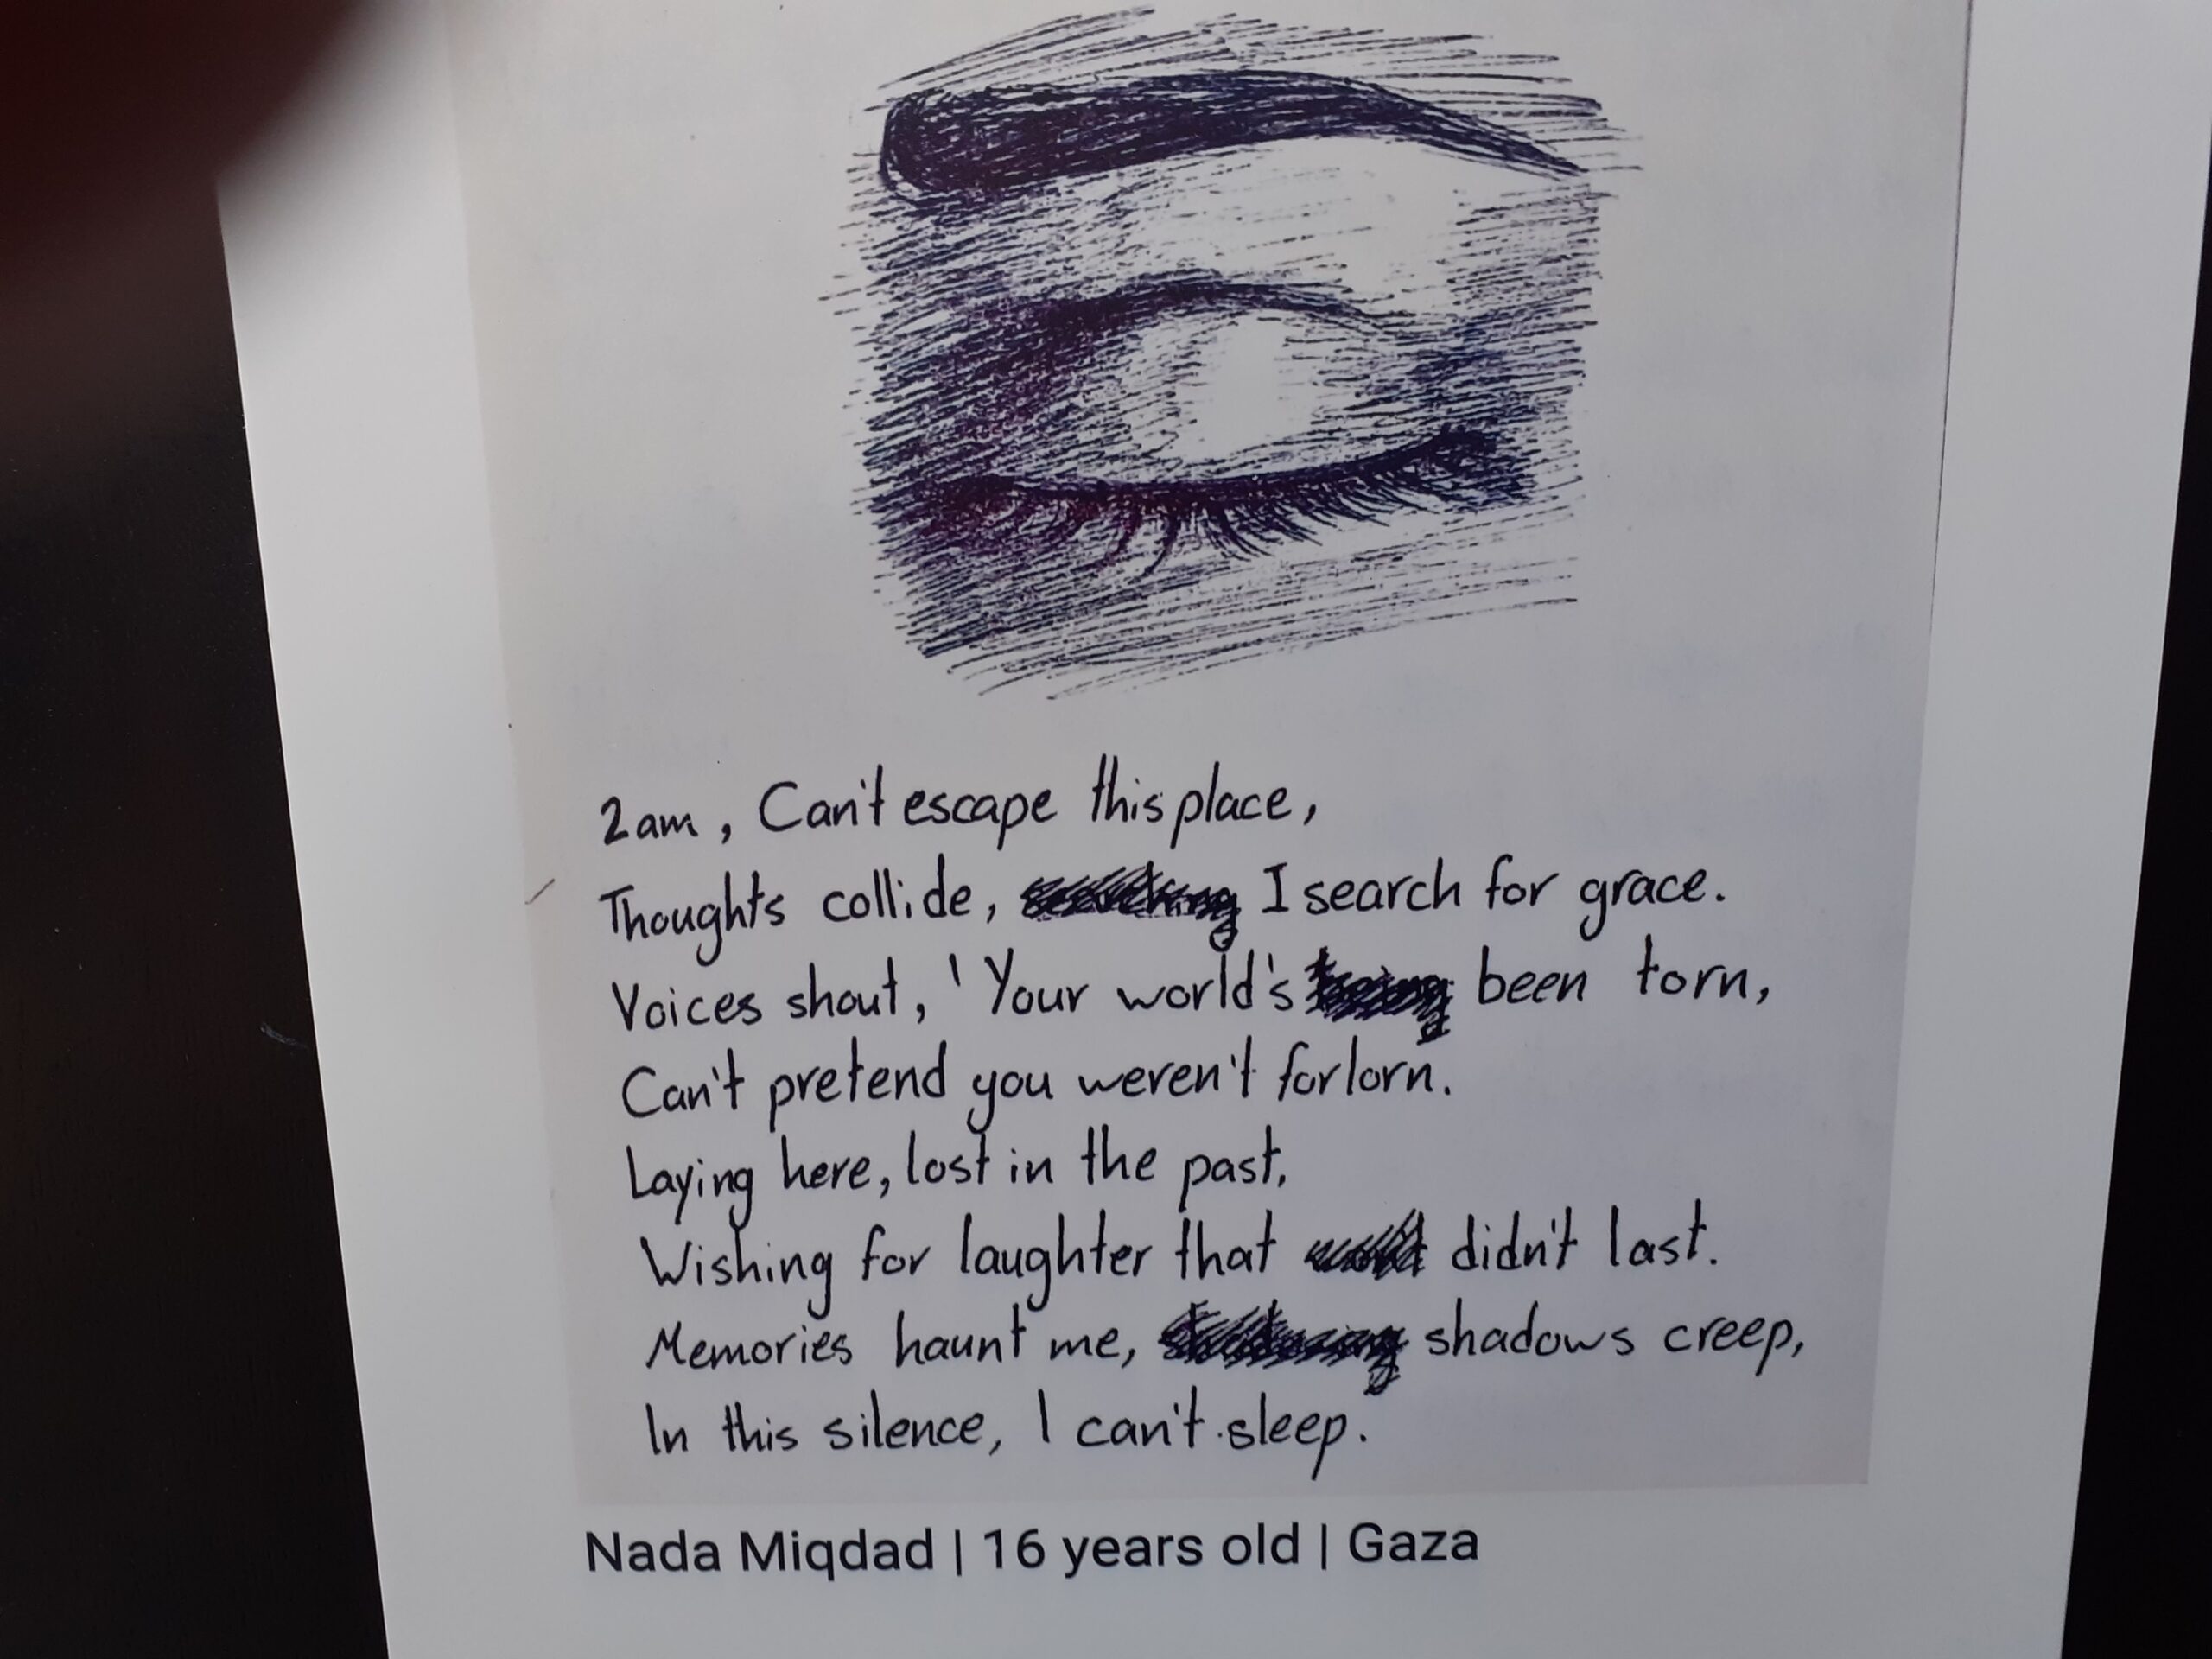 2am, Can't escape this place,
Thoughts collide, I search for grace.
Voices shout, 'Your world's been torn,
Can't pretend you weren't forlorn.
Laying here, lost in the past,
Wishing for laughter that didn't last.
Memories haunt me, shadows creep,
In this silence, I can't sleep.
Nada Miqdad | 16 years old | Gaza